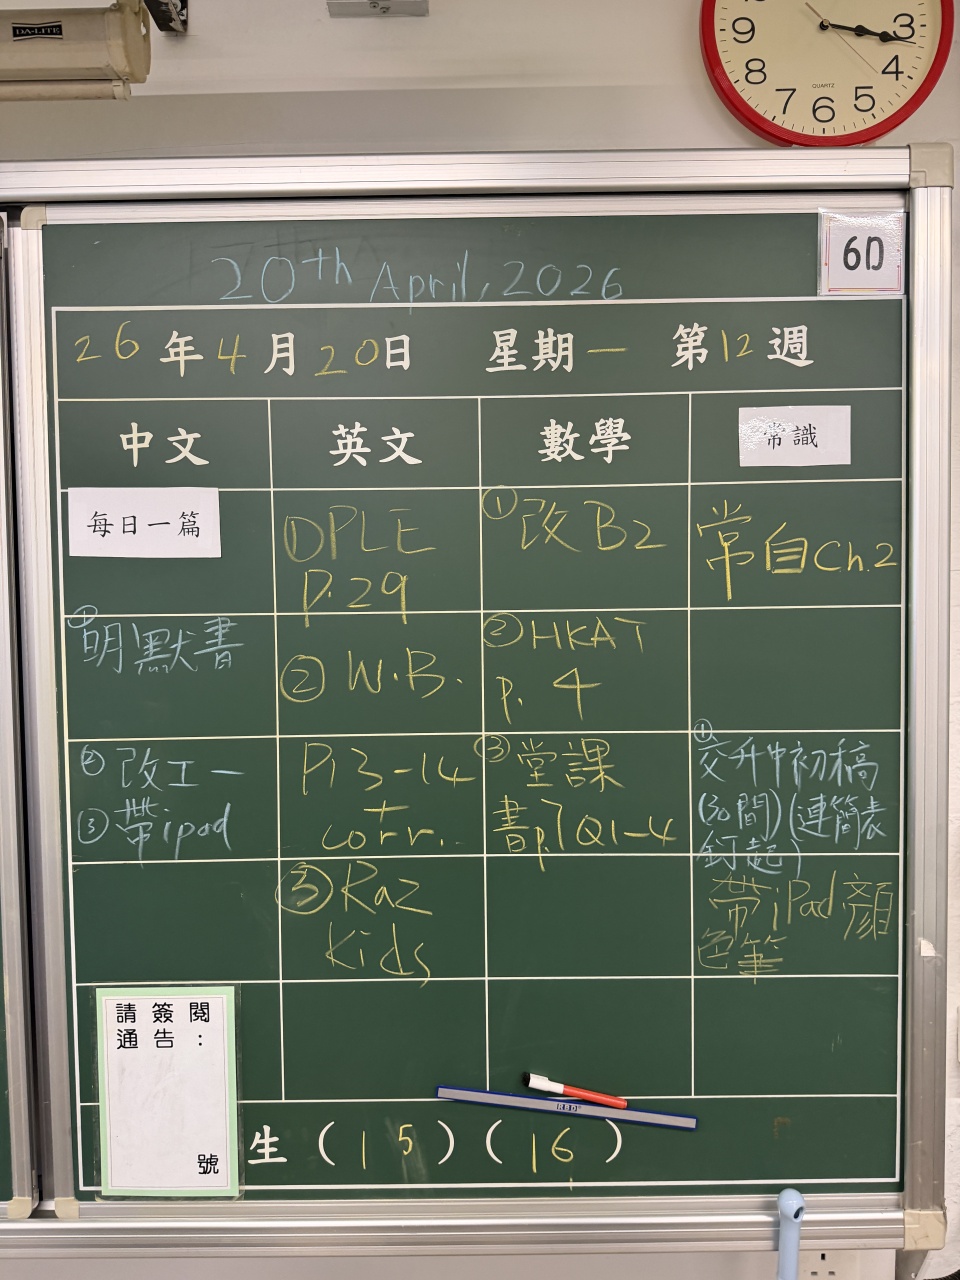 DA-LITE
9
3
8
4
7
6
5
QUARTZ
6D
20th April, 2026
26年4月20日 星期一 第12週
中文
英文
數學
常識
每日一篇
①PLE
P.29
①改B2
常自Ch.2
①明默書
②W.B.
②HKAT
p.4
②改工一
③帶ipad
P.13-14
+
corr.
③堂課
書p.7Q1-4
①交升中初稿
(30間)(連簡表
釘起)
③Raz
kids
帶iPad顏
色筆
請簽閱
通告:
號
生(15)(16)